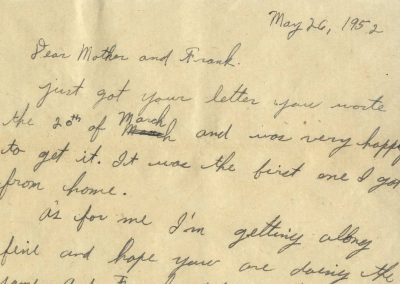 May 26, 1952
Dear Mother and Frank.
Just got your letter you wrote
the 20th of March and was very happy
to get it. It was the first one I got
from home.
As for me I'm getting along
fine and hope your are doing the
same